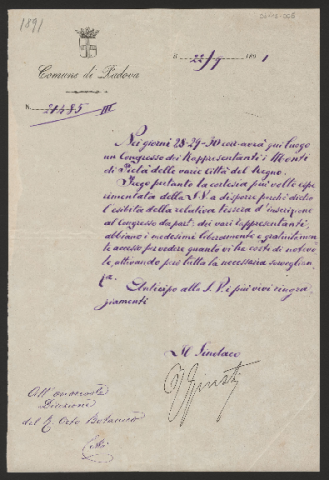 1891
Comune di Padova
22/9 1891
N. 21485 III
Nei giorni 28-29-30 corr. avrà qui luogo
un Congresso dei Rappresentanti i Monti
di Pietà delle varie Città del Regno.
Prego pertanto la cortesia più volte espe
rimentata della S.V. a disporre perchè dietro
l'esibita della relativa tessera d'inscrizione
al Congresso da parte dei vari rappresentanti,
abbiano i medesimi liberamente e gratuitamen
te accesso per vedere quanto vi ha costì di notevo
le, attivando però tutta la necessaria sorveglian
za.
Anticipo alla S.V. i più vivi ringra
ziamenti
Il Sindaco
All'onorevole
Direzione
del R. Orto Botanico
Città